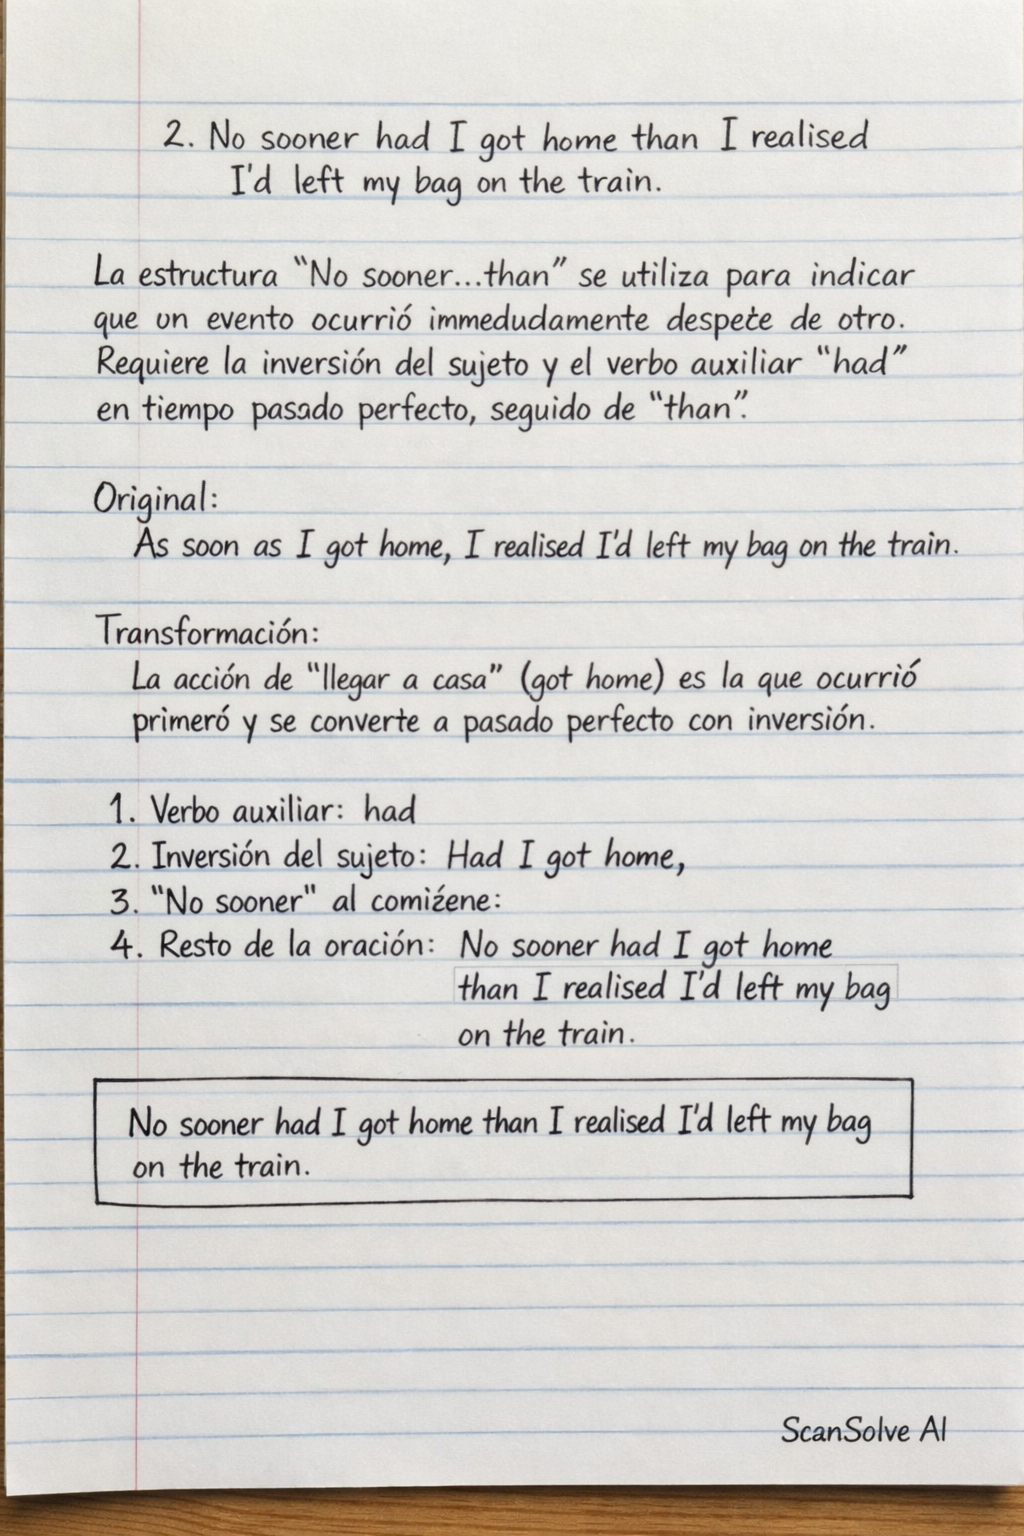 2. No sooner had I got home than I realised
I'd left my bag on the train.
La estructura “No sooner...than” se utiliza para indicar
que un evento ocurrió immedudamente despeċte de otro.
Requiere la inversión del sujeto y el verbo auxiliar “had”
en tiempo pasado perfecto, seguido de “than”.
Original:
As soon as I got home, I realised I'd left my bag on the train.
Transformación:
La acción de “llegar a casa” (got home) es la que ocurrió
primeró y se converte a pasado perfecto con inversión.
1. Verbo auxiliar: had
2. Inversión del sujeto: Had I got home,
3. "No sooner" al comiźene:
4. Resto de la oración: No sooner had I got home
than I realised I'd left my bag
on the train.
No sooner had I got home than I realised I'd left my bag
on the train.
ScanSolve AI